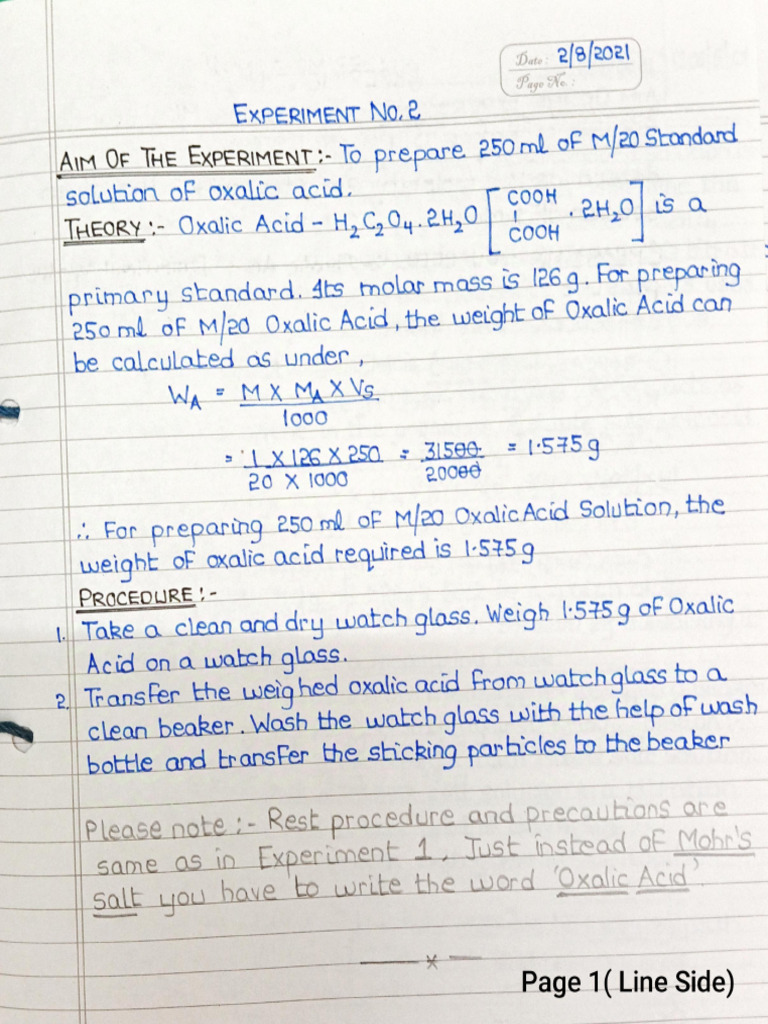 Date: 2/8/2021
Page No.:
EXPERIMENT No. 2
AIM OF THE EXPERIMENT :- To prepare 250 ml of M/20 Standard
solution of oxalic acid.
THEORY :- Oxalic Acid – H₂C₂O₄.2H₂O [COOH | COOH . 2H₂O] is a
primary standard. Its molar mass is 126 g. For preparing
250 ml of M/20 Oxalic Acid, the weight of Oxalic Acid can
be calculated as under,
W_A = M X M_A X Vs
1000
= 1 X 126 X 250 = 31500 = 1.575 g
20 X 1000 20000
∴ For preparing 250 ml of M/20 Oxalic Acid Solution, the
weight of oxalic acid required is 1.575 g
PROCEDURE :-
1. Take a clean and dry watch glass. Weigh 1.575 g of Oxalic
Acid on a watch glass.
2. Transfer the weighed oxalic acid from watch glass to a
clean beaker. Wash the watch glass with the help of wash
bottle and transfer the sticking particles to the beaker
Please note :- Rest procedure and precautions are
same as in Experiment 1, Just instead of Mohr's
salt you have to write the word 'Oxalic Acid'.
Page 1( Line Side)